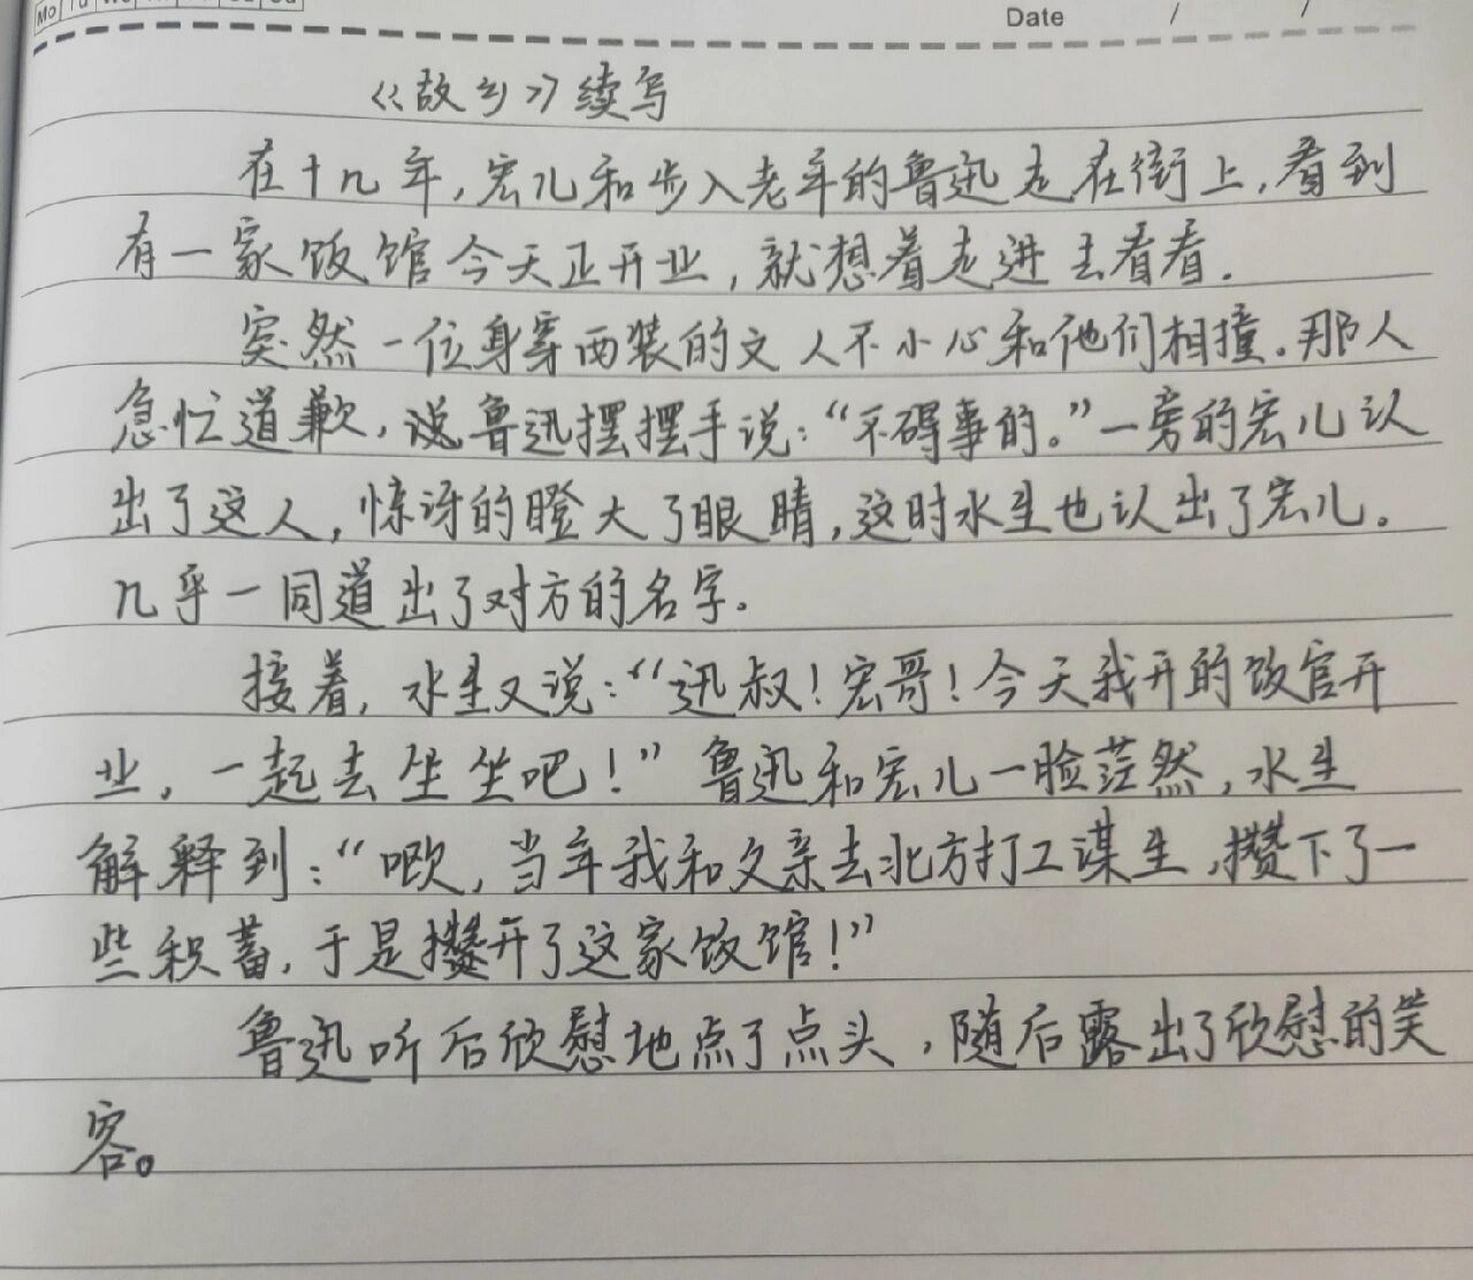 Date / /
《故乡》续写
在十几年,宏儿和步入老年的鲁迅走在街上,看到
有一家饭馆今天正开业,就想着走进去看看.
突然一位身穿西装的文人不小心和他们相撞。那人
急忙道歉,说鲁迅摆摆手说:“不碍事的。”一旁的宏儿认
出了这人,惊讶的瞪大了眼睛,这时水生也认出了宏儿。
几乎一同道出了对方的名字。
接着,水生又说:“迅叔!宏哥!今天我开的饭官开
业,一起去坐坐吧!”鲁迅和宏儿一脸茫然,水生
解释到:“噢,当年我和父亲去北方打工谋生,攒下了一
些积蓄,于是攒开了这家饭馆!”
鲁迅听后欣慰地点了点头,随后露出了欣慰的笑
容。